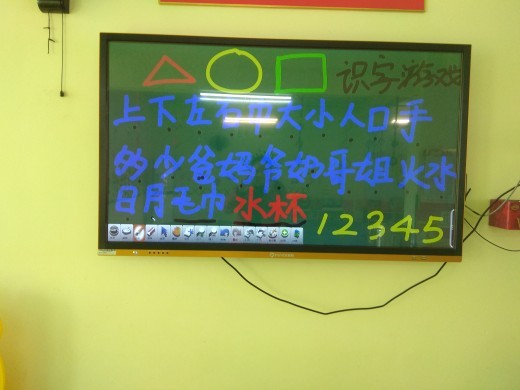 识字游戏
上下左右中大小人口手
多少爸妈爷奶哥姐火水
日月毛巾 水杯 12345